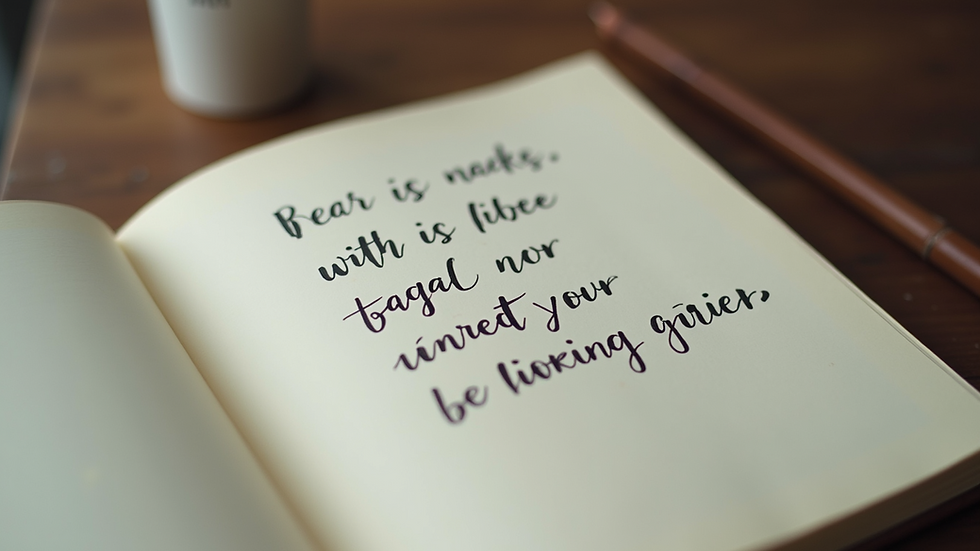 Bear is nacks.
with is libee
tagal nor
uinred your
be lioking girier,